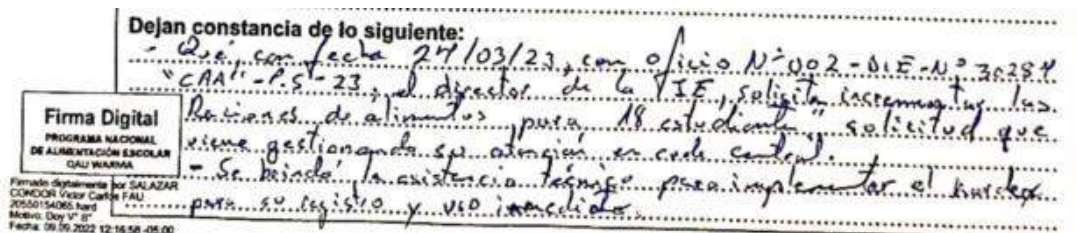 Dejan constancia de lo siguiente:
- Qué, con fecha 24/03/23, con oficio N°002-DIE-N°30284
"CAA"-P.S-23, el director de la IE, solicita incrementar las
Raciones de alimentos para 18 estudiantes, solicitud que
viene gestionando su atención en sede central.
- Se brindó la asistencia técnica para implementar el kardex
para su registro y uso inmediato.
Firma Digital
PROGRAMA NACIONAL
DE ALIMENTACIÓN ESCOLAR
QALI WARMA
Firmado digitalmente por SALAZAR
CONDOR Victor Carlos FAU
20550154065 hard
Motivo: Doy V° B°
Fecha: 09.09.2022 12:16:58 -05:00